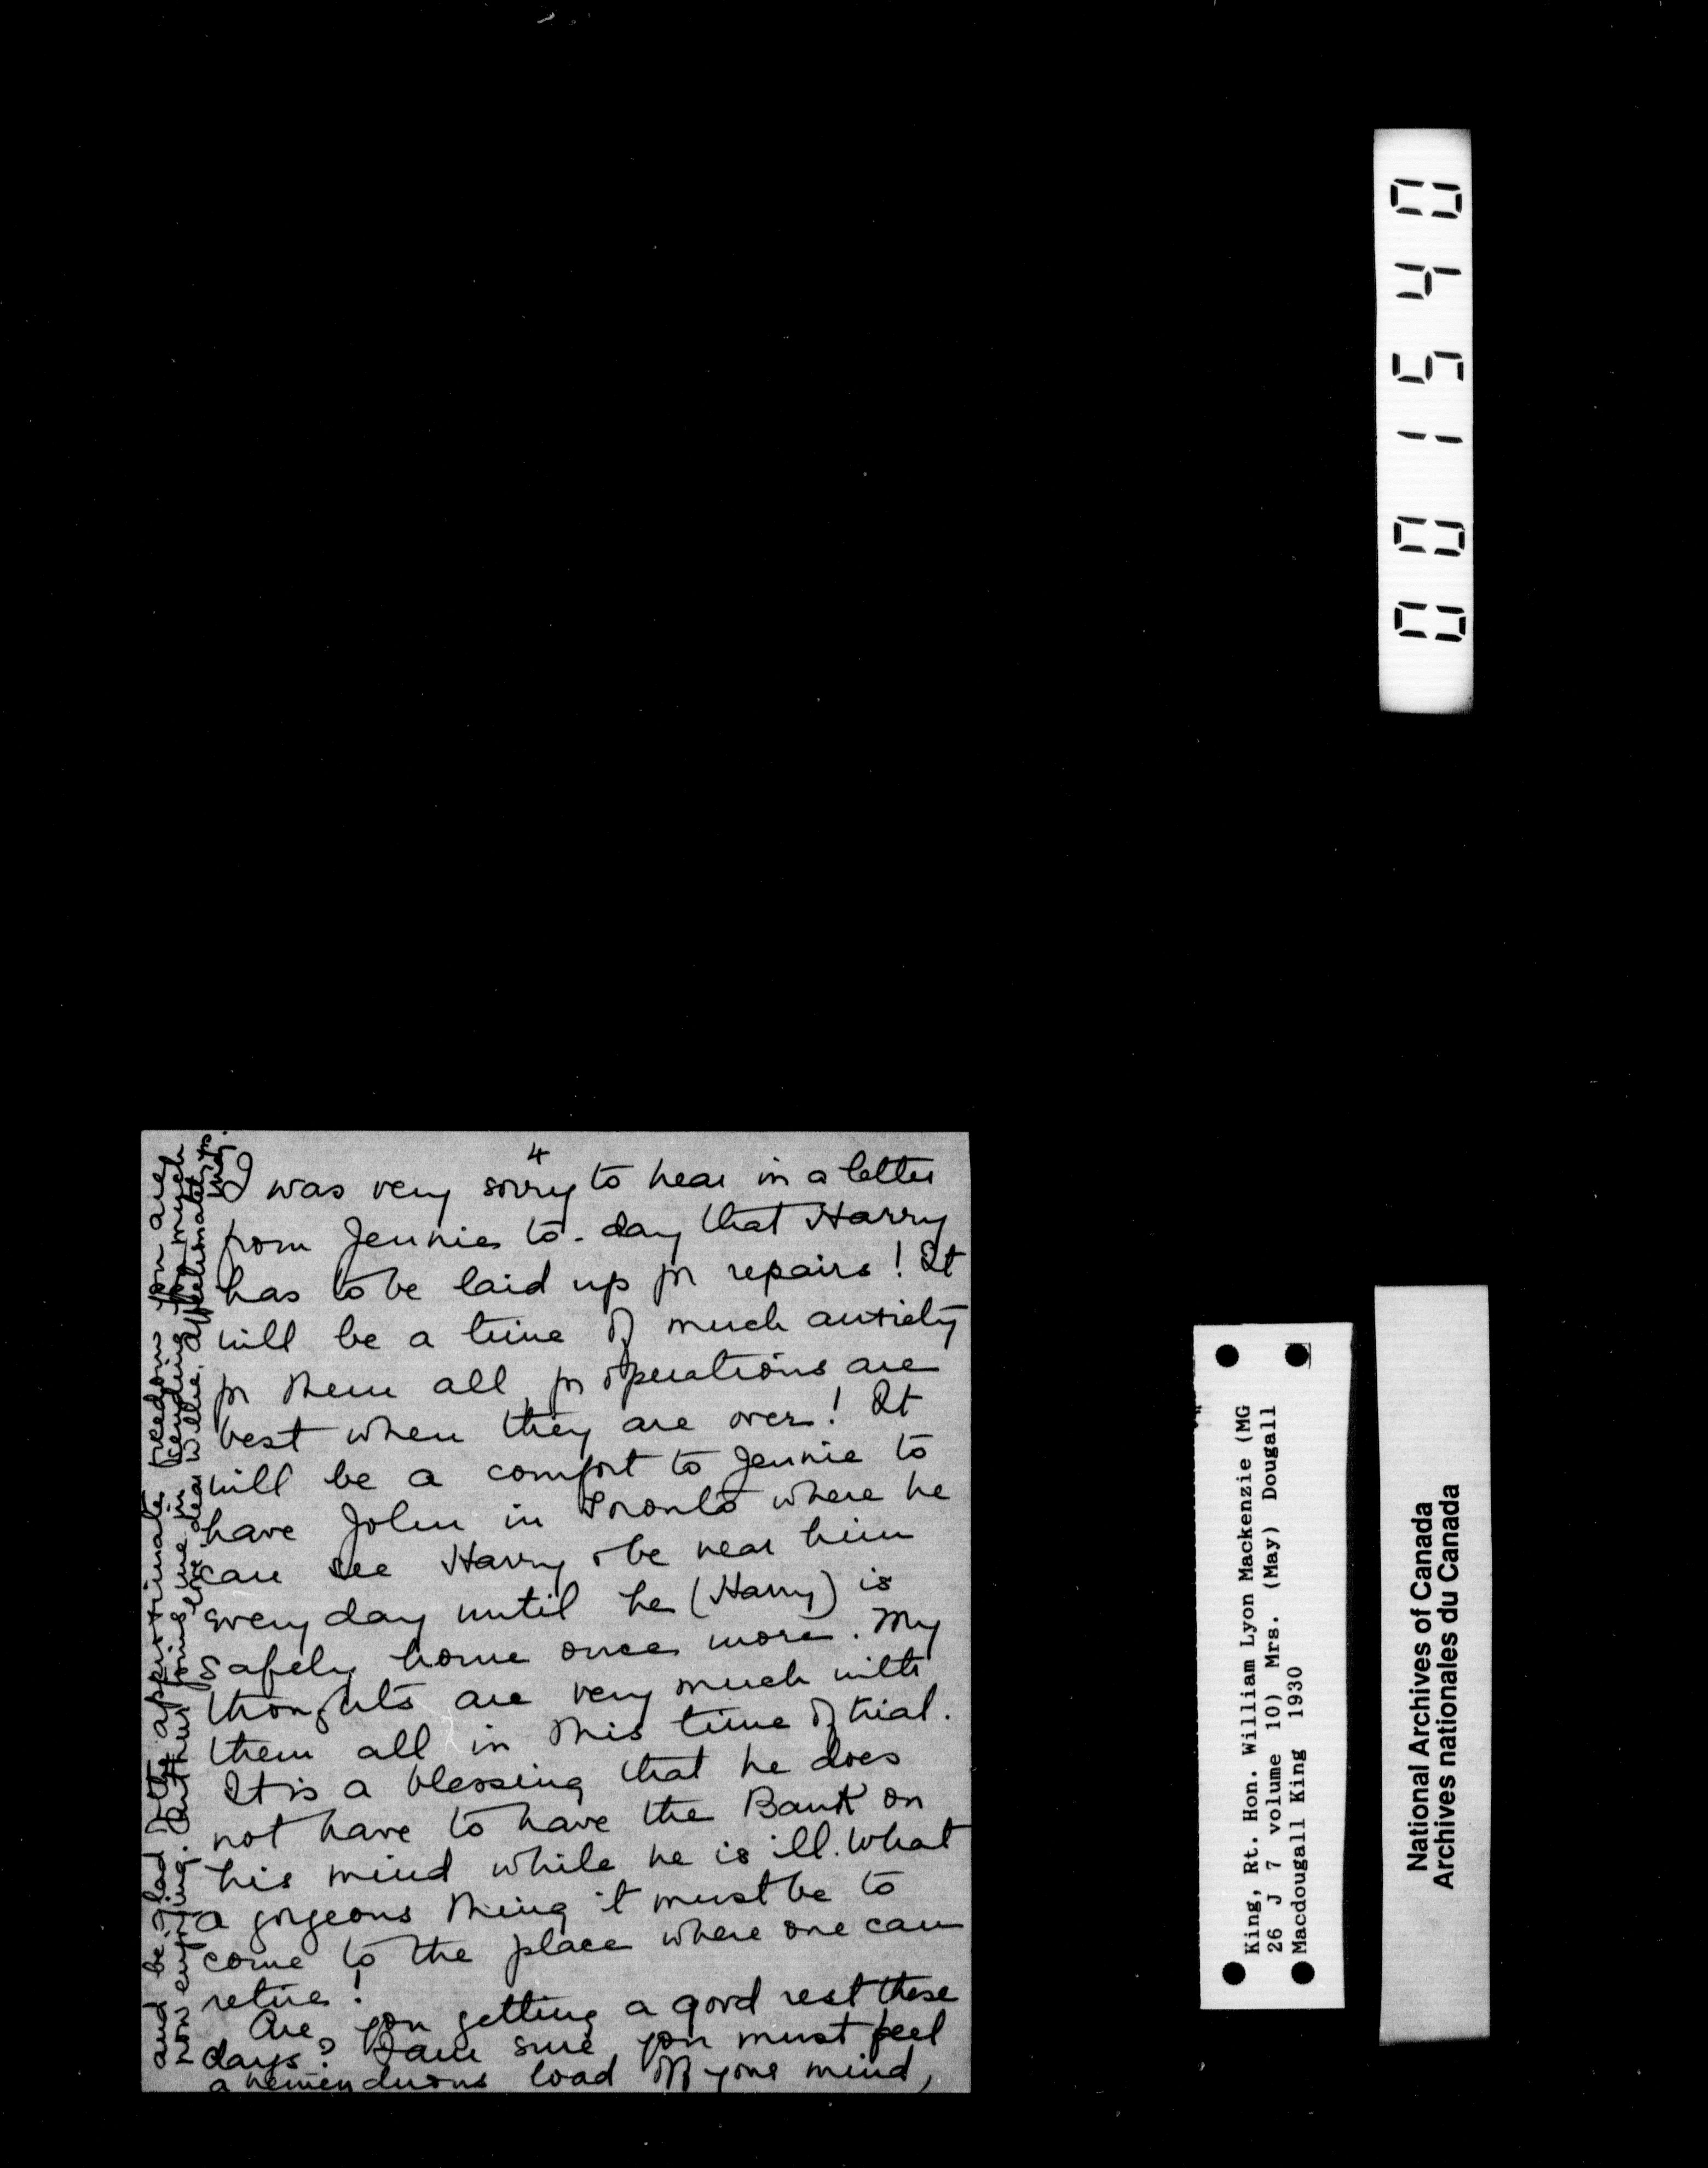 4
I was very sorry to hear in a letter
from Jennie to-day that Harry
has to be laid up for repairs! It
will be a time of much anxiety
for them all, for operations are
best when they are over! It
will be a comfort to Jennie to
have John in Toronto where he
can see Harry & be near him
every day until he (Harry) is
safely home once more. My
thoughts are very much with
them all in this time of trial.
It is a blessing that he does
not have to have the Bank on
his mind while he is ill. What
a gorgeous thing it must be to
come to the place where one can
retire!
Are you getting a good rest these
days? I am sure you must feel
a tremenduous load off your mind,
and be glad of the approximate freedom you are
now enjoying. Arthur joins me in sending you much
love, dear Willie. Affectionately yrs
May.
001540
King, Rt. Hon. William Lyon Mackenzie (MG
26 J 7 volume 10) Mrs. (May) Dougall
Macdougall King 1930
National Archives of Canada
Archives nationales du Canada